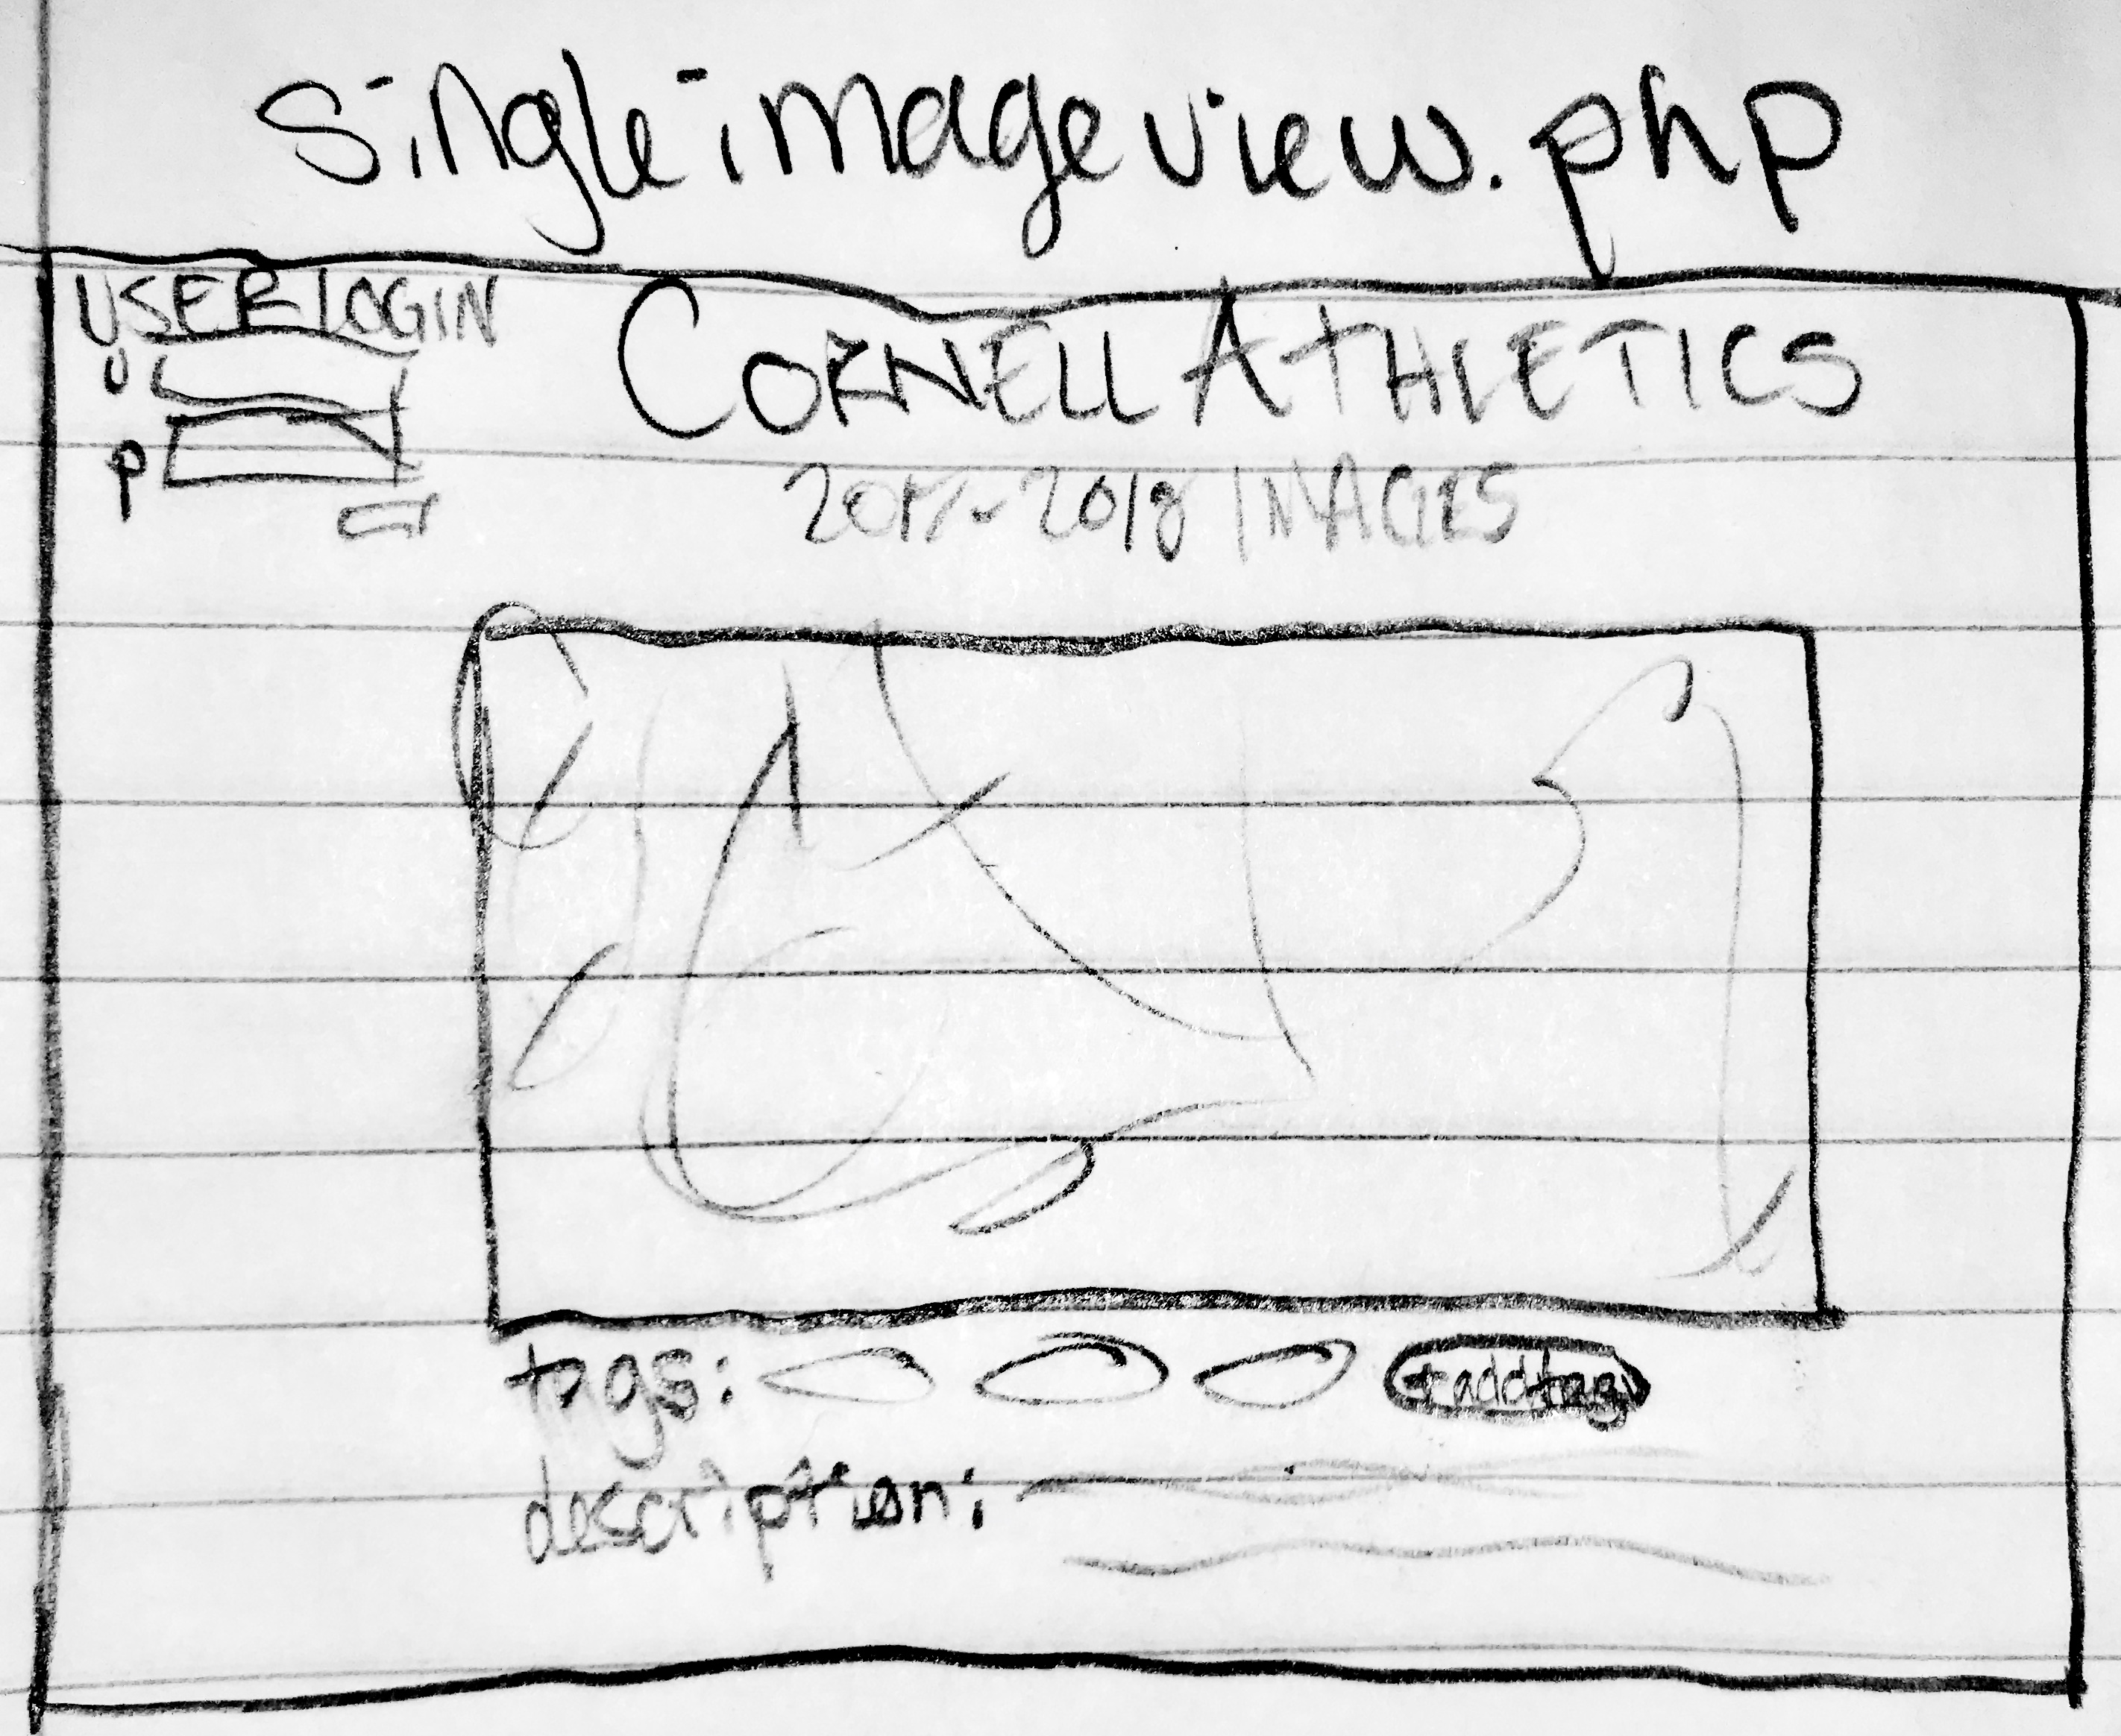 singleimageview.php
USER LOGIN
U
P
CORNELL ATHLETICS
2017-2018 IMAGES
tags: + add tag
description: